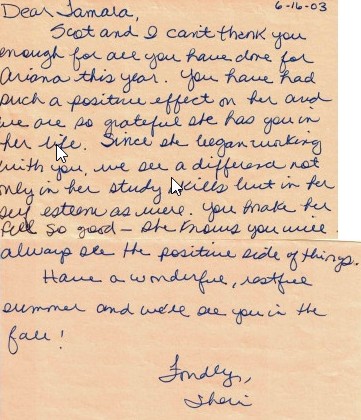 6-16-03
Dear Tamara,
Scot and I can't thank you
enough for all you have done for
Ariana this year. You have had
such a positive effect on her and
we are so grateful she has you in
her life. Since she began working
with you, we see a difference not
only in her study skills but in her
self esteem as well. You make her
feel so good - she knows you will
always see the positive side of things.
Have a wonderful, restful
summer and we'll see you in the
fall!
Fondly,
Sheri